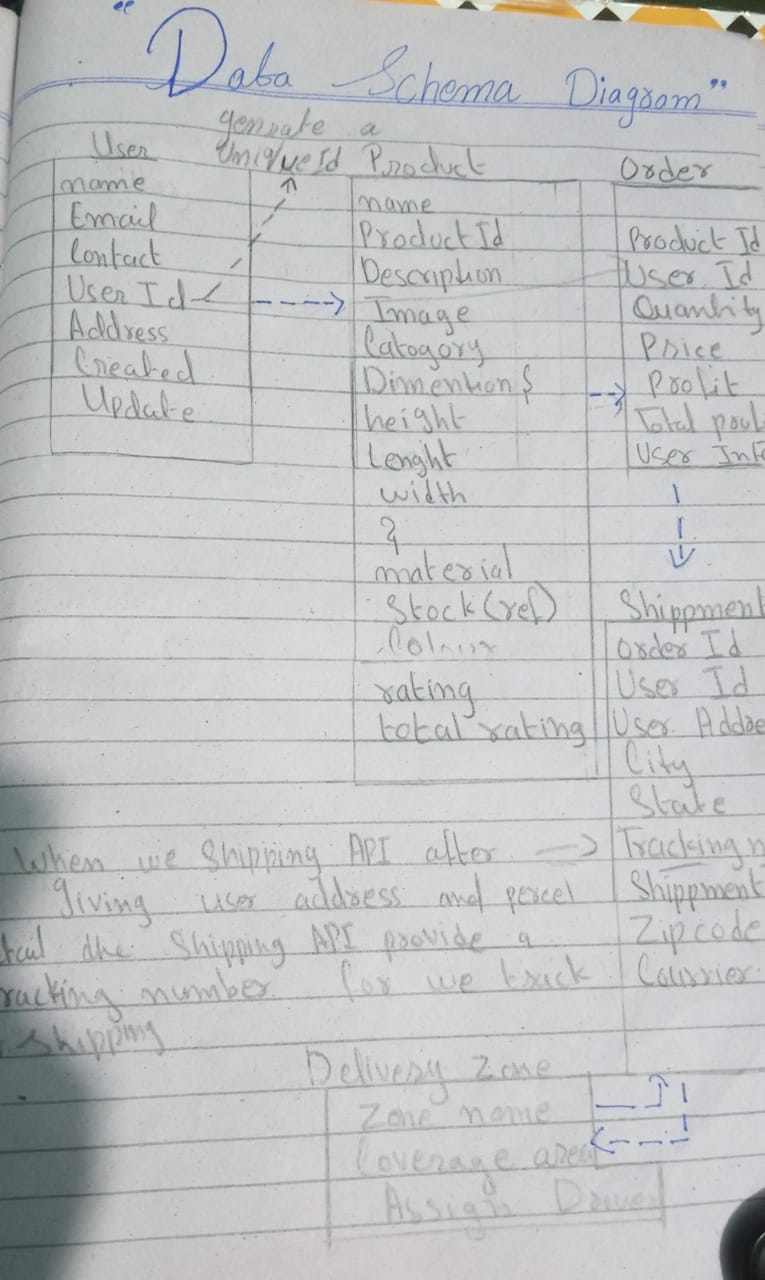 "Data Schema Diagram"
genrate a
UniqueId
User
name
Email
Contact
User Id
Address
Created
Update
Product
name
Product Id
Description
Image
Catogory
Dimention {
height
Lenght
width
}
material
Stock (ref)
Colour
rating
total rating
Order
Product Id
User Id
Quantity
Price
Profit
Total
User
Shippment
Order Id
User Id
User
City
State
Tracking
Shippment
Zipcode
Courrier
When we Shipping API after
giving user address and percel
the Shipping API provide a
number for we track
Shipping
Delivery Zone
Zone name
Coverage area
Assign